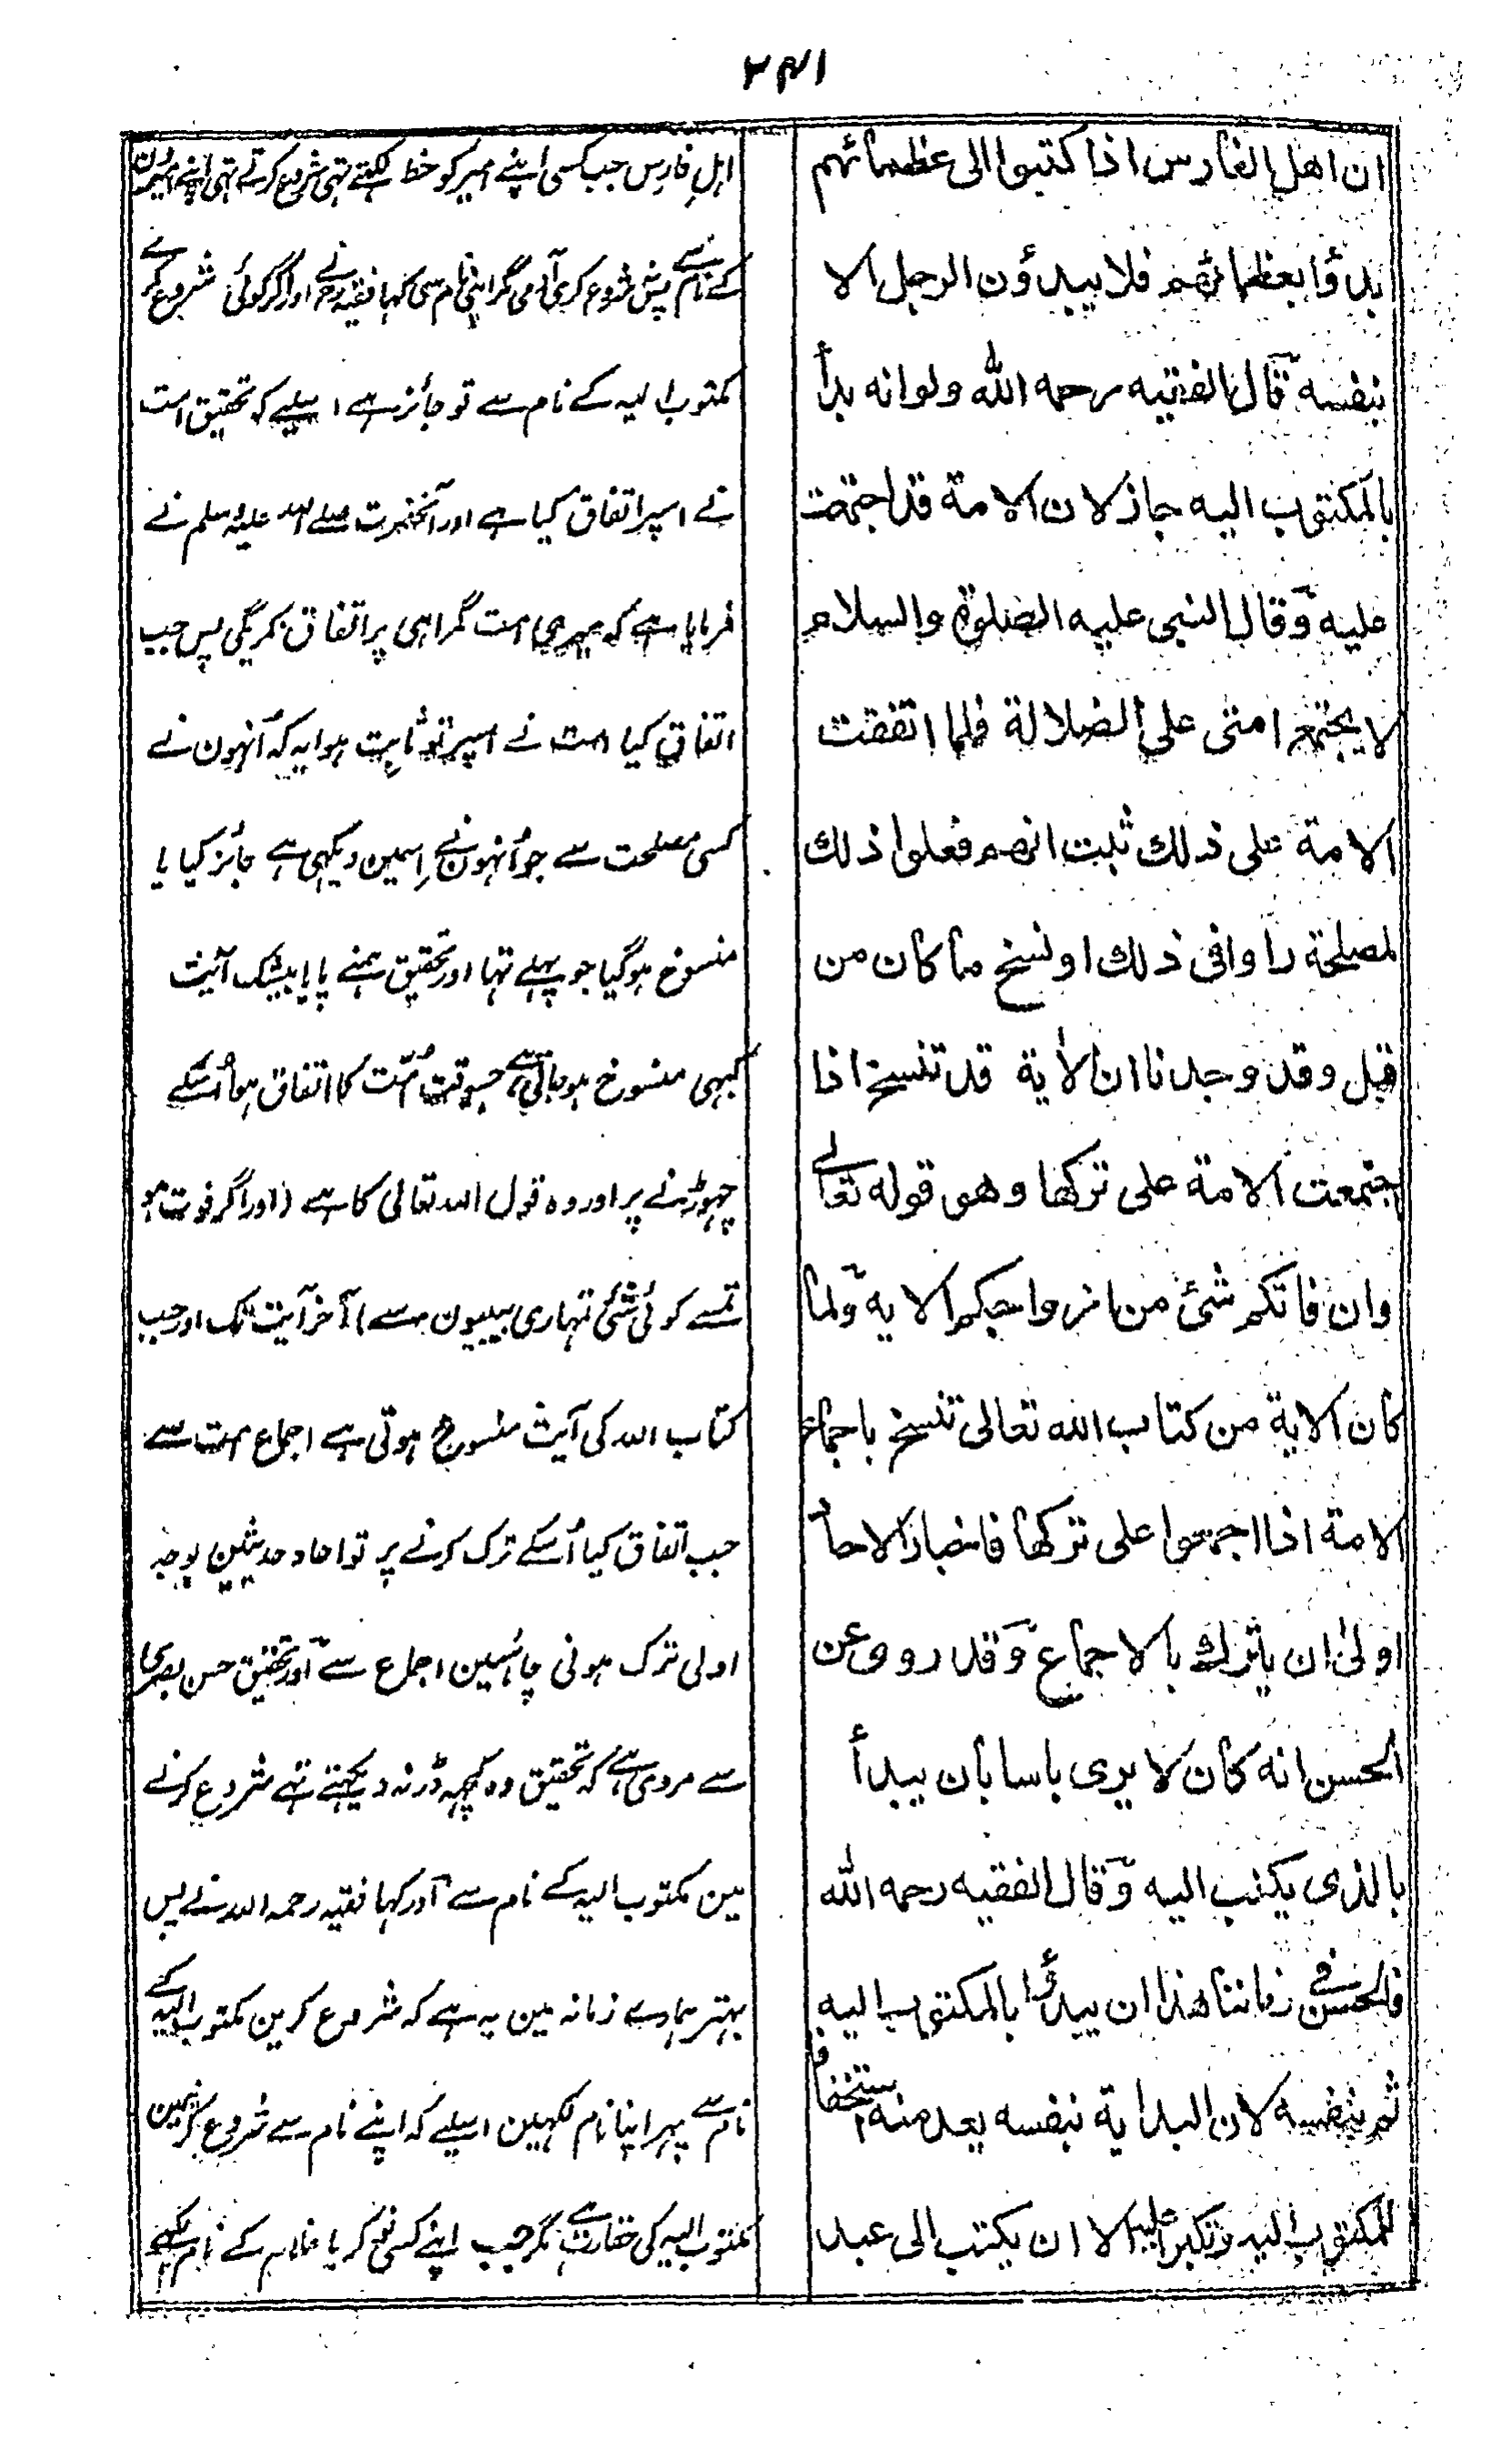 ۳۴۱
ان اهل الفارس اذا كتبوا الى عظمائهم
بدؤا بعظمائهم فلا يبدؤن الرجل الا
بنفسه قال الفقيه رحمه الله ولو انه بدأ
بالمكتوب اليه جاز لان الامة قد اجتمعت
عليه وقال النبى عليه الصلوة والسلام
لا يجتمع امتى على الضلالة فلما اتفقت
الامة على ذلك ثبت انهم فعلوا ذلك
لمصلحة راوا فى ذلك او نسخ ما كان من
قبل وقد وجدنا ان الاية قد تنسخ اذا
اجتمعت الامة على تركها وهو قوله تعالے
وان فاتكم شئ من ازواجكم الاية ولما
كان الاية من كتاب الله تعالى تنسخ باجماع
الامة اذا اجمعوا على تركها فاخبار الاحاد
اولى ان يترك بالاجماع وقد روى عن
الحسن انه كان لا يرى باسا بان يبدأ
بالذى يكتب اليه وقال الفقيه رحمه الله
فالحسن فے زماننا هذا ان يبدؤا بالمكتوب اليه
ثم بنفسه لان البداية بنفسه يعد منه استخفافا
للمكتوب اليه وتكبرا عليه الا ان يكتب الى عبد
اہل فارس جب کسی اپنے امیر کو خط لکھتے تہی شروع کرتے تہی اپنے امیرون
کے نام سے پس شروع کری آدمی مگر اپنی نام سی کہا فقیہ رحمہ نے اور اگر کوئی شروع کرے
مکتوب الیہ کے نام سے تو جائز ہے اسلیے کہ تحقیق امت
نے اسپر اتفاق کیا ہے اور آنحضرت صلے اللہ علیہ وسلم نے
فرمایا ہے کہ میری امت گمراہی پر اتفاق نکریگی پس جب
اتفاق کیا امت نے اسپر تو ثابت ہوا یہ کہ اُنہون نے
کسی مصلحت سے جو اُنہون نے اِسمین دیکہی ہے جائز کیا یا
منسوخ ہوگیا جو پہلے تہا اور تحقیق ہمنے پایا بیشک آیت
کبہی منسوخ ہو جاتی ہے جسوقت اُمّت کا اتفاق ہو اُسکے
چہوڑنے پر اور وہ قول اللہ تعالی کا ہے (اور اگر فوت ہو
تمسے کوئی شئی تمہاری بیبیون مین سے) آخر آیت تک اور جب
کتاب اللہ کی آیت منسوخ ہوتی ہے اجماع امت سے
جب اتفاق کیا اُسکے ترک کرنے پر تو احاد حدیثین بوجہ
اولی ترک ہونی چاہئین اجماع سے اور تحقیق حسن بصری
سے مروی ہے کہ تحقیق وہ کچہہ ڈر نہ دیکہتے تہے شروع کرنے
مین مکتوب الیہ کے نام سے اور کہا فقیہ رحمہ اللہ نے پس
بہتر ہمارے زمانہ مین یہ ہے کہ شروع کرین مکتوب الیہ کے
نام سے پہر اپنا نام لکہین اسلیے کہ اپنے نام سے شروع کرنے مین
مکتوب الیہ کی حقارت ہے مگر جب اپنے کسی نوکر یا غلام کے نام لکہے